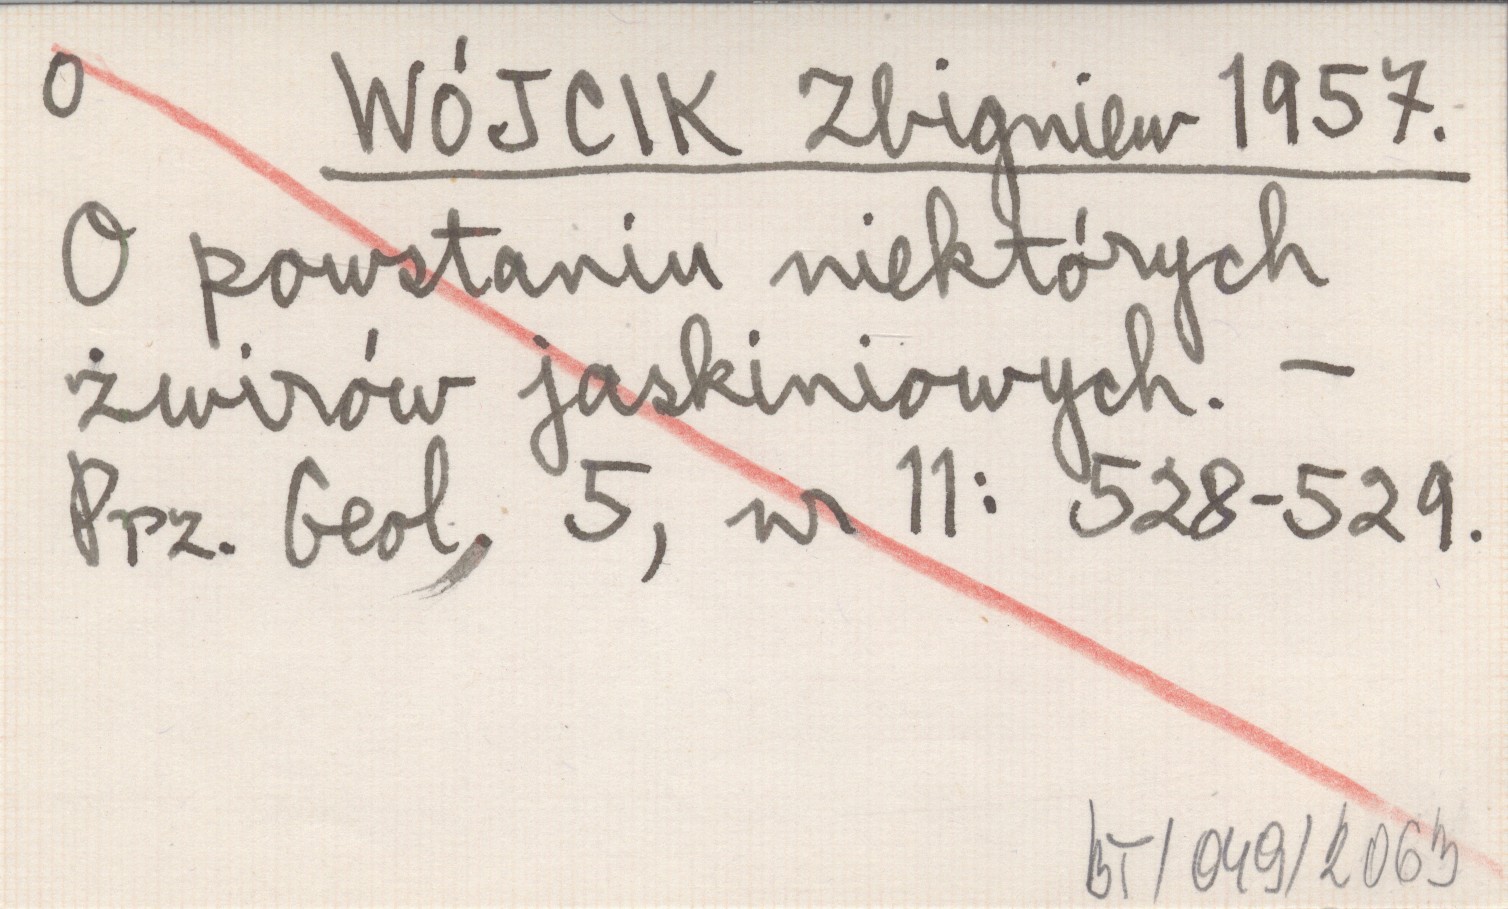 O WÓJCIK Zbigniew 1957.
O powstaniu niektórych
żwirów jaskiniowych. –
Prz. Geol, 5, nr 11: 528-529.
BT/049/2063